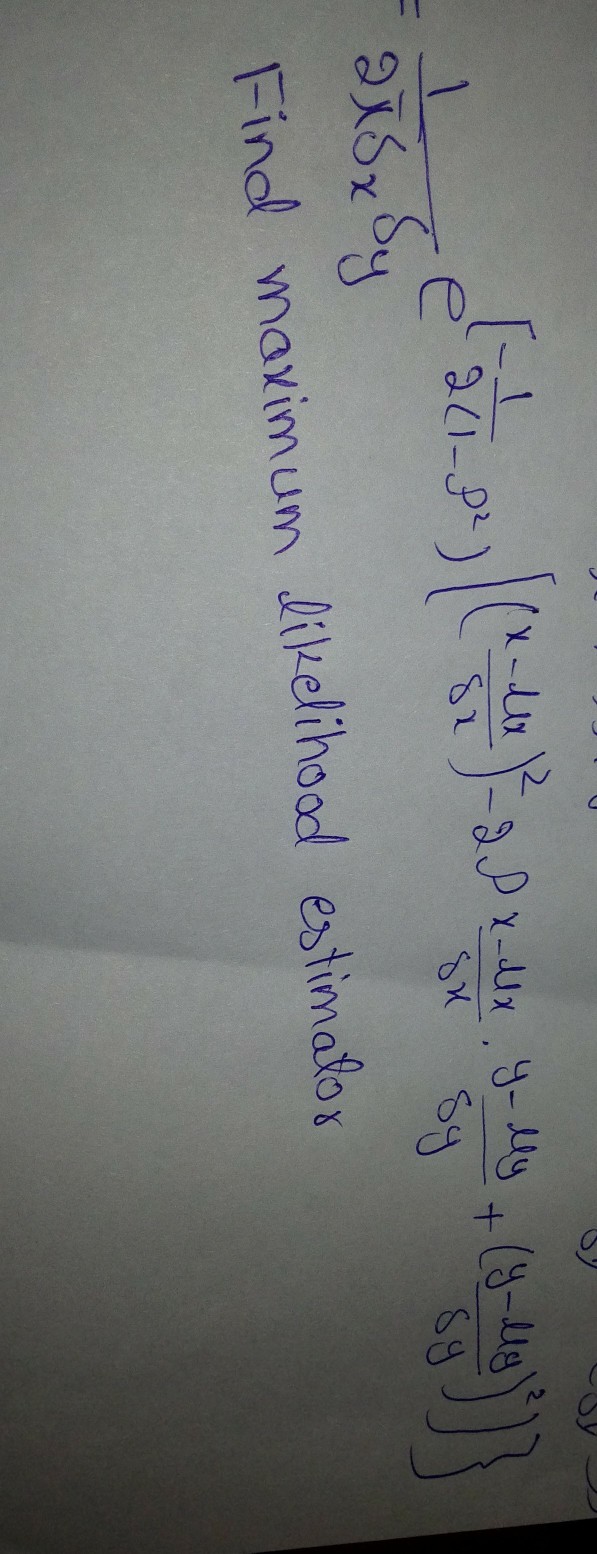 = 1/(2πδx δy) e^{[-1/(2(1-ρ²)) [((x-μx)/δx)² - 2ρ (x-μx)/δx · (y-μy)/δy + ((y-μy)/δy)²]}
Find maximum likelihood estimator